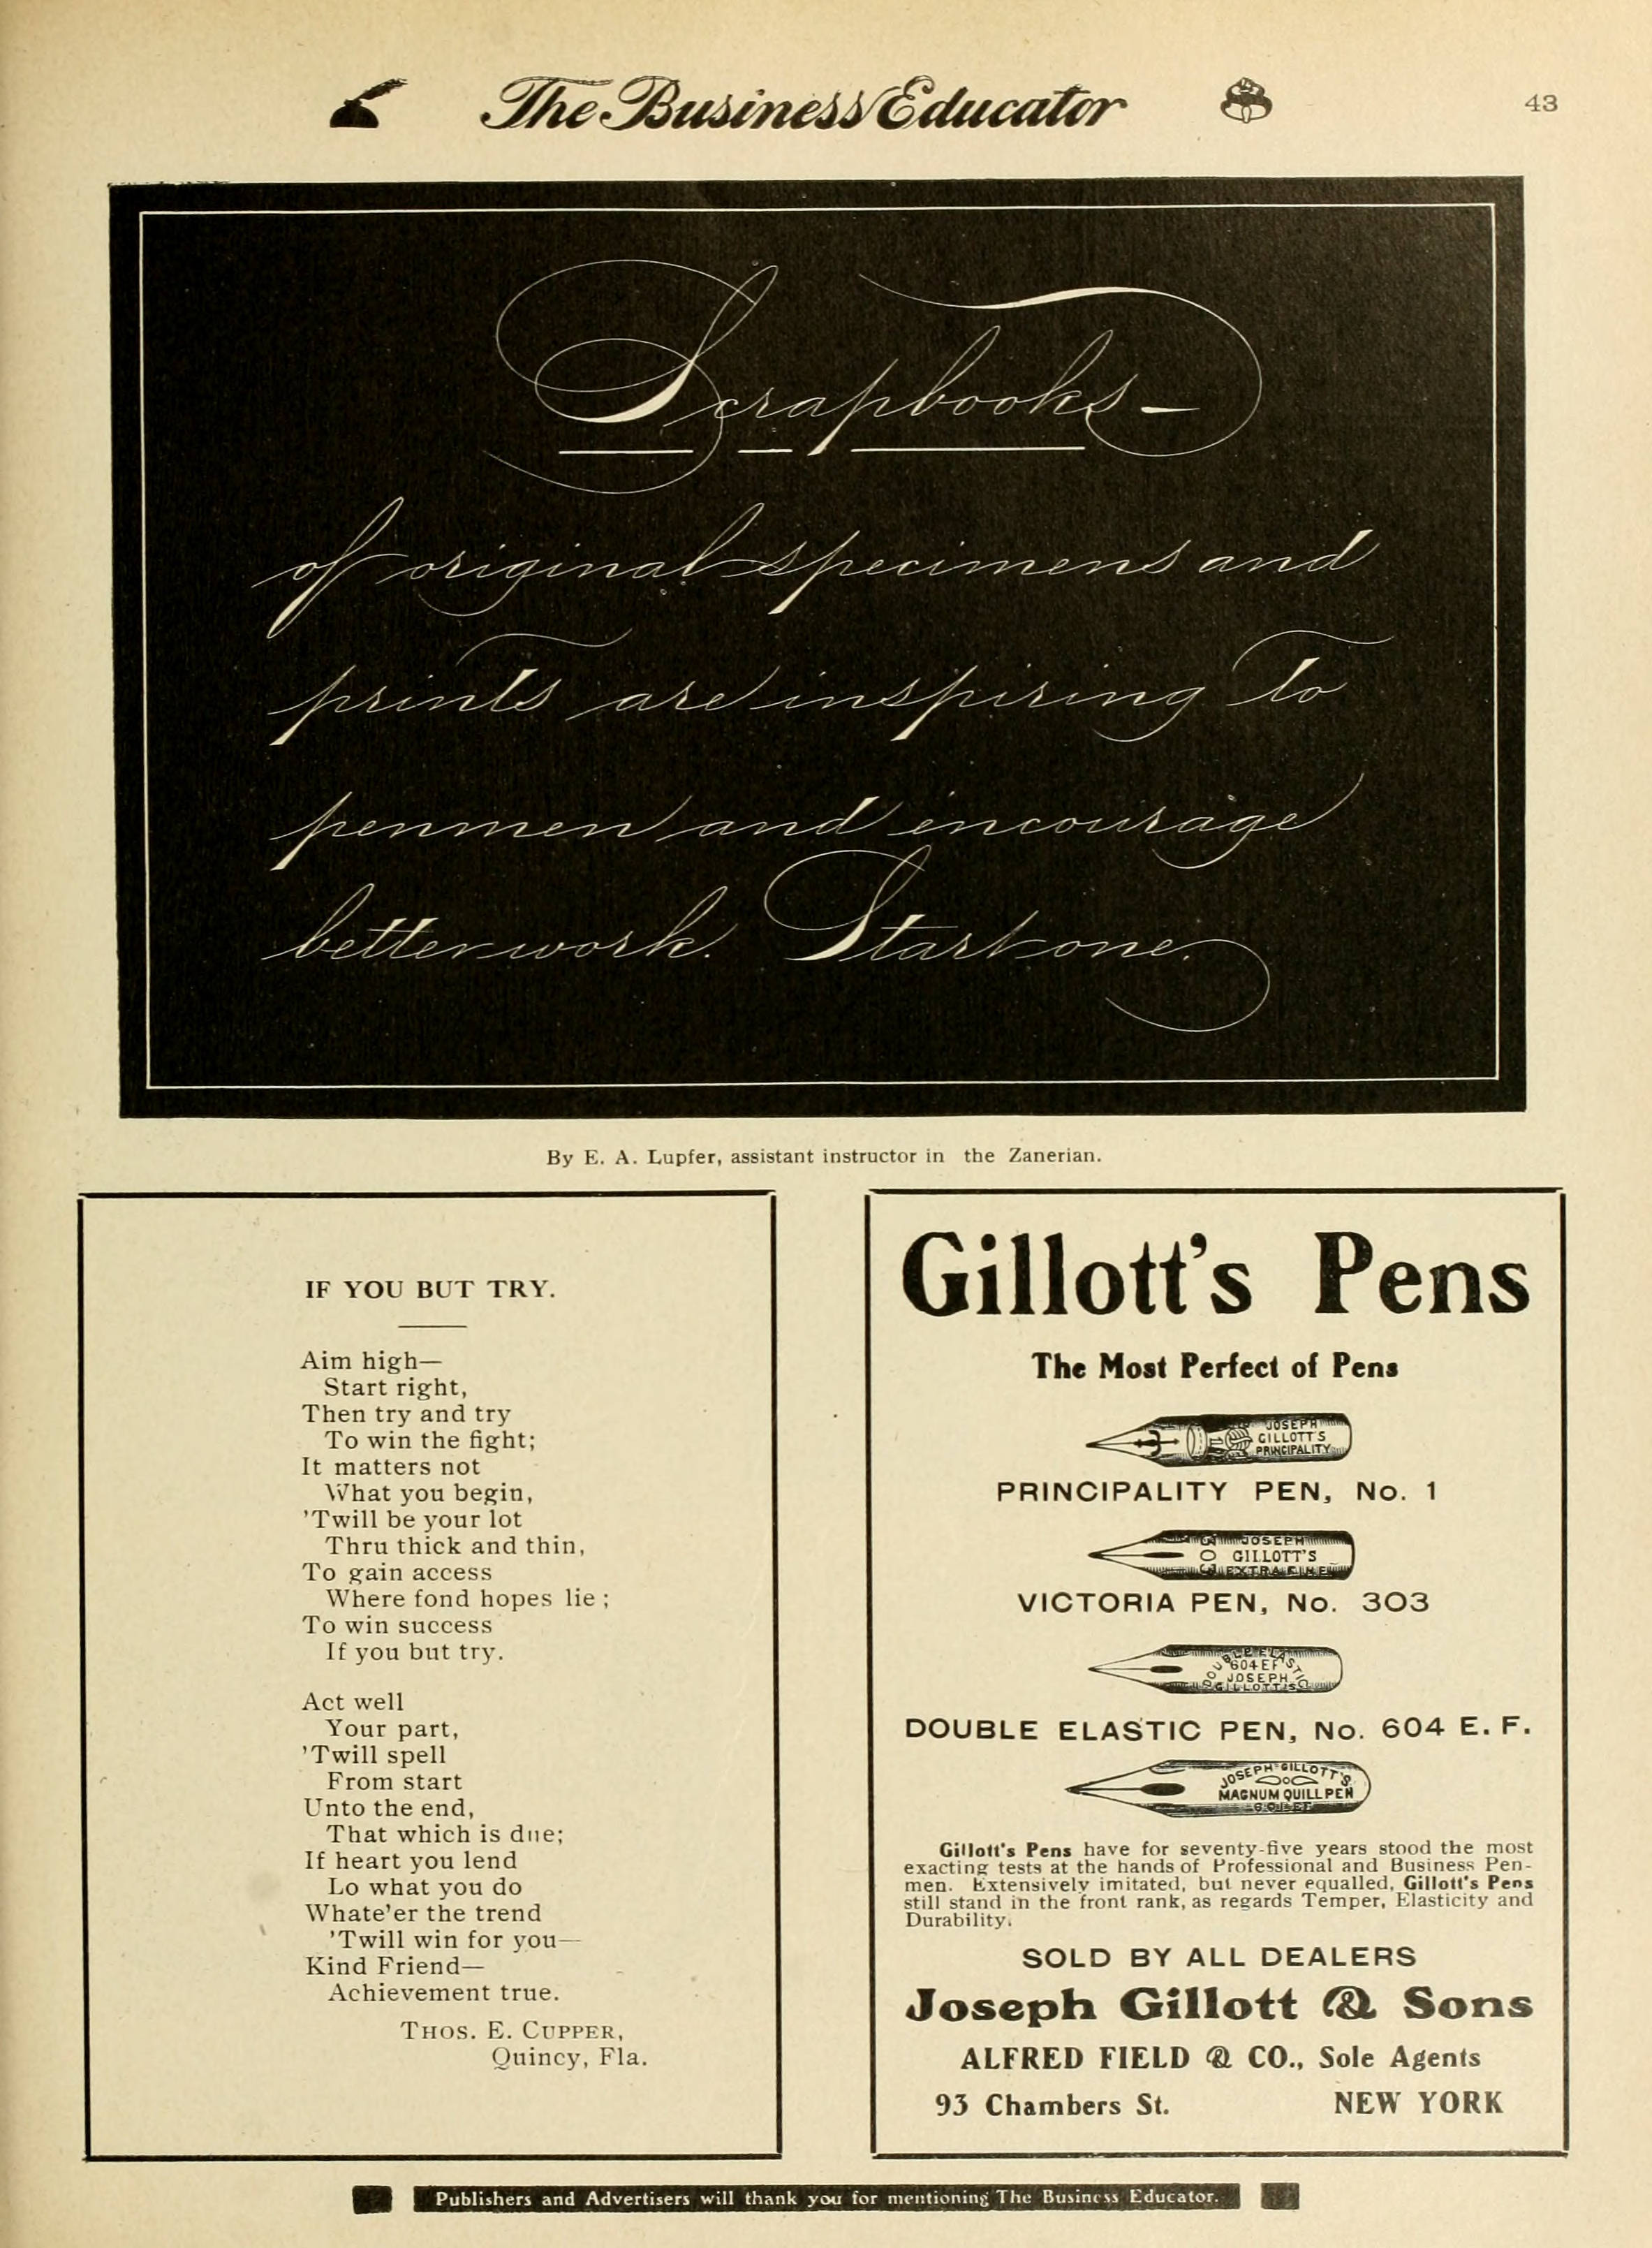 The Business Educator
43
Scrapbooks-
of original specimens and
prints are inspiring to
penmen and encourage
better work. Start one.
By E. A. Lupfer, assistant instructor in the Zanerian.
IF YOU BUT TRY.
Aim high—
Start right,
Then try and try
To win the fight;
It matters not
What you begin,
'Twill be your lot
Thru thick and thin,
To gain access
Where fond hopes lie ;
To win success
If you but try.
Act well
Your part,
'Twill spell
From start
Unto the end,
That which is due;
If heart you lend
Lo what you do
Whate'er the trend
'Twill win for you—
Kind Friend—
Achievement true.
THOS. E. CUPPER,
Quincy, Fla.
Gillott's Pens
The Most Perfect of Pens
JOSEPH
GILLOTT'S
PRINCIPALITY
PRINCIPALITY PEN, No. 1
303
JOSEPH
GILLOTT'S
EXTRA FINE
VICTORIA PEN, No. 303
DOUBLE ELASTIC
604 EF
JOSEPH
GILLOTT'S
DOUBLE ELASTIC PEN, No. 604 E. F.
JOSEPH GILLOTT'S
MAGNUM QUILL PEN
Gillott's Pens have for seventy-five years stood the most
exacting tests at the hands of Professional and Business Pen-
men. Extensively imitated, but never equalled, Gillott's Pens
still stand in the front rank, as regards Temper, Elasticity and
Durability.
SOLD BY ALL DEALERS
Joseph Gillott & Sons
ALFRED FIELD & CO., Sole Agents
93 Chambers St. NEW YORK
Publishers and Advertisers will thank you for mentioning The Business Educator.